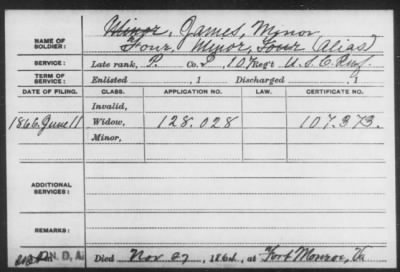 NAME OF SOLDIER: Minor, James, Minor
Four, Minor, Four (Alias)
SERVICE: Late rank, P. Co. I, 107 Reg't U.S.C. Inf.
TERM OF SERVICE: Enlisted , 1 Discharged , 1
DATE OF FILING. CLASS. APPLICATION NO. LAW. CERTIFICATE NO.
Invalid,
1866 June 11 Widow, 128.028 107.373.
Minor,
ADDITIONAL SERVICES:
REMARKS:
N. D. A.
Died Nov 27, 1864, at Fort Monroe, Va